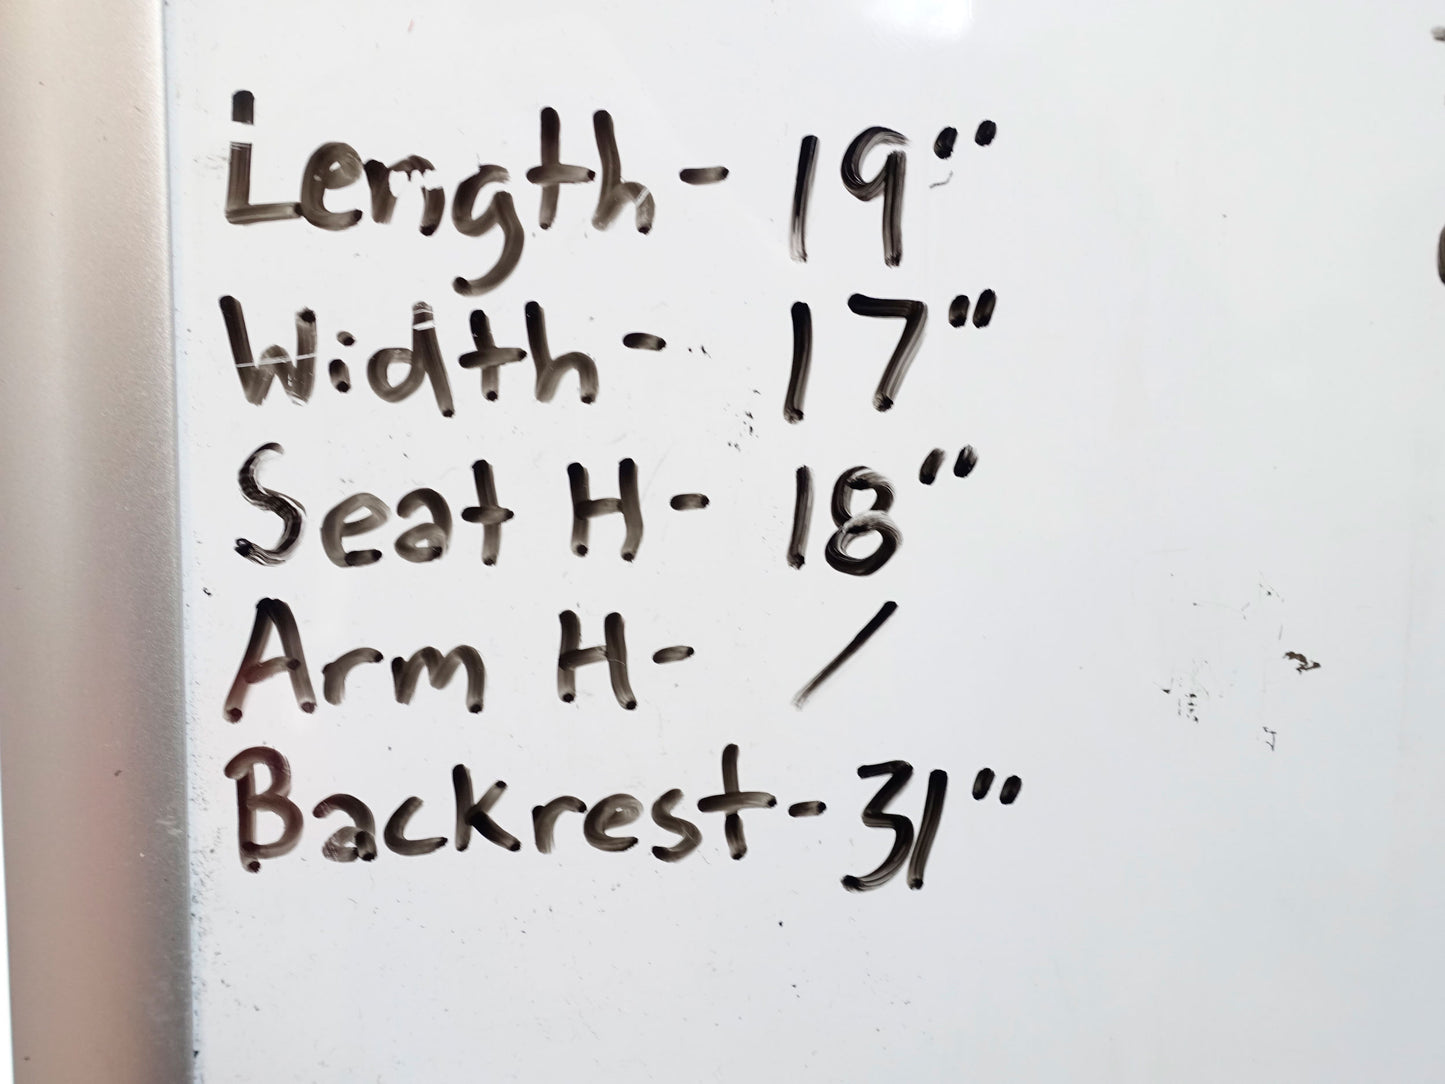 Length - 19"
Width - 17"
Seat H - 18"
Arm H - /
Backrest - 31"